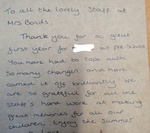 To all the lovely Staff at
Mrs Bonds.
Thank you for a great
first year for at pre-School
You have had to cope with
so many changes and have
carried it off brilliantly we
are so grateful for all the
staff's hard work at making
great memories for all our
children. Enjoy the Summer